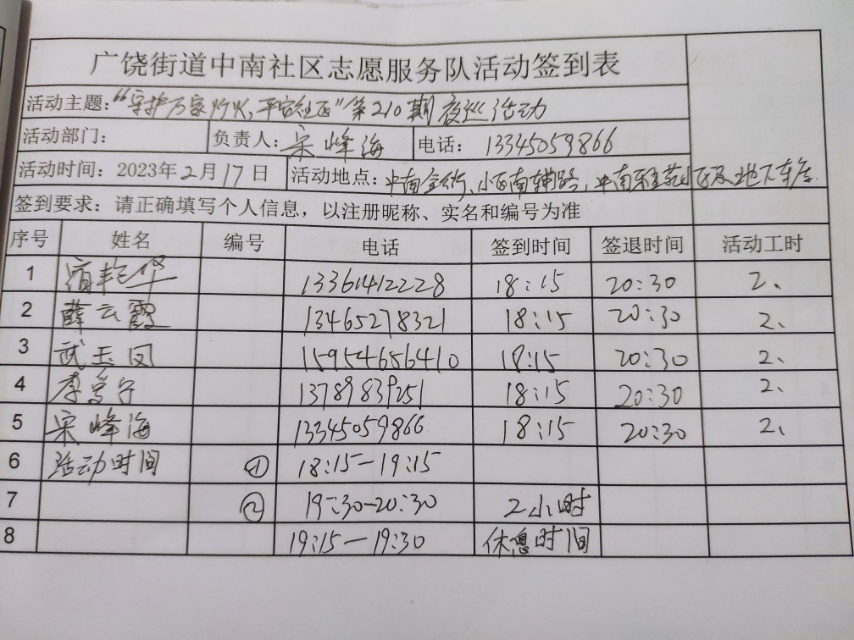 广饶街道中南社区志愿服务队活动签到表
活动主题：“守护万家灯火，平安社区”第210期夜巡活动
活动部门： 负责人：宋峰海 电话：13345059866
活动时间：2023年2月17日 活动地点：中南金街、小区南辅路，中南 小区及地下车库
签到要求：请正确填写个人信息，以注册昵称、实名和编号为准
序号 姓名 编号 电话 签到时间 签退时间 活动工时
1 艳华 13361412228 18:15 20:30 2、
2 薛云霞 13465278321 18:15 20:30 2、
3 武玉凤 15954656410 18:15 20:30 2、
4 李 宁 13789839251 18:15 20:30 2、
5 宋峰海 13345059866 18:15 20:30 2、
6 活动时间 ① 18:15—19:15
7 ② 19:30-20:30 2小时
8 19:15—19:30 休息时间